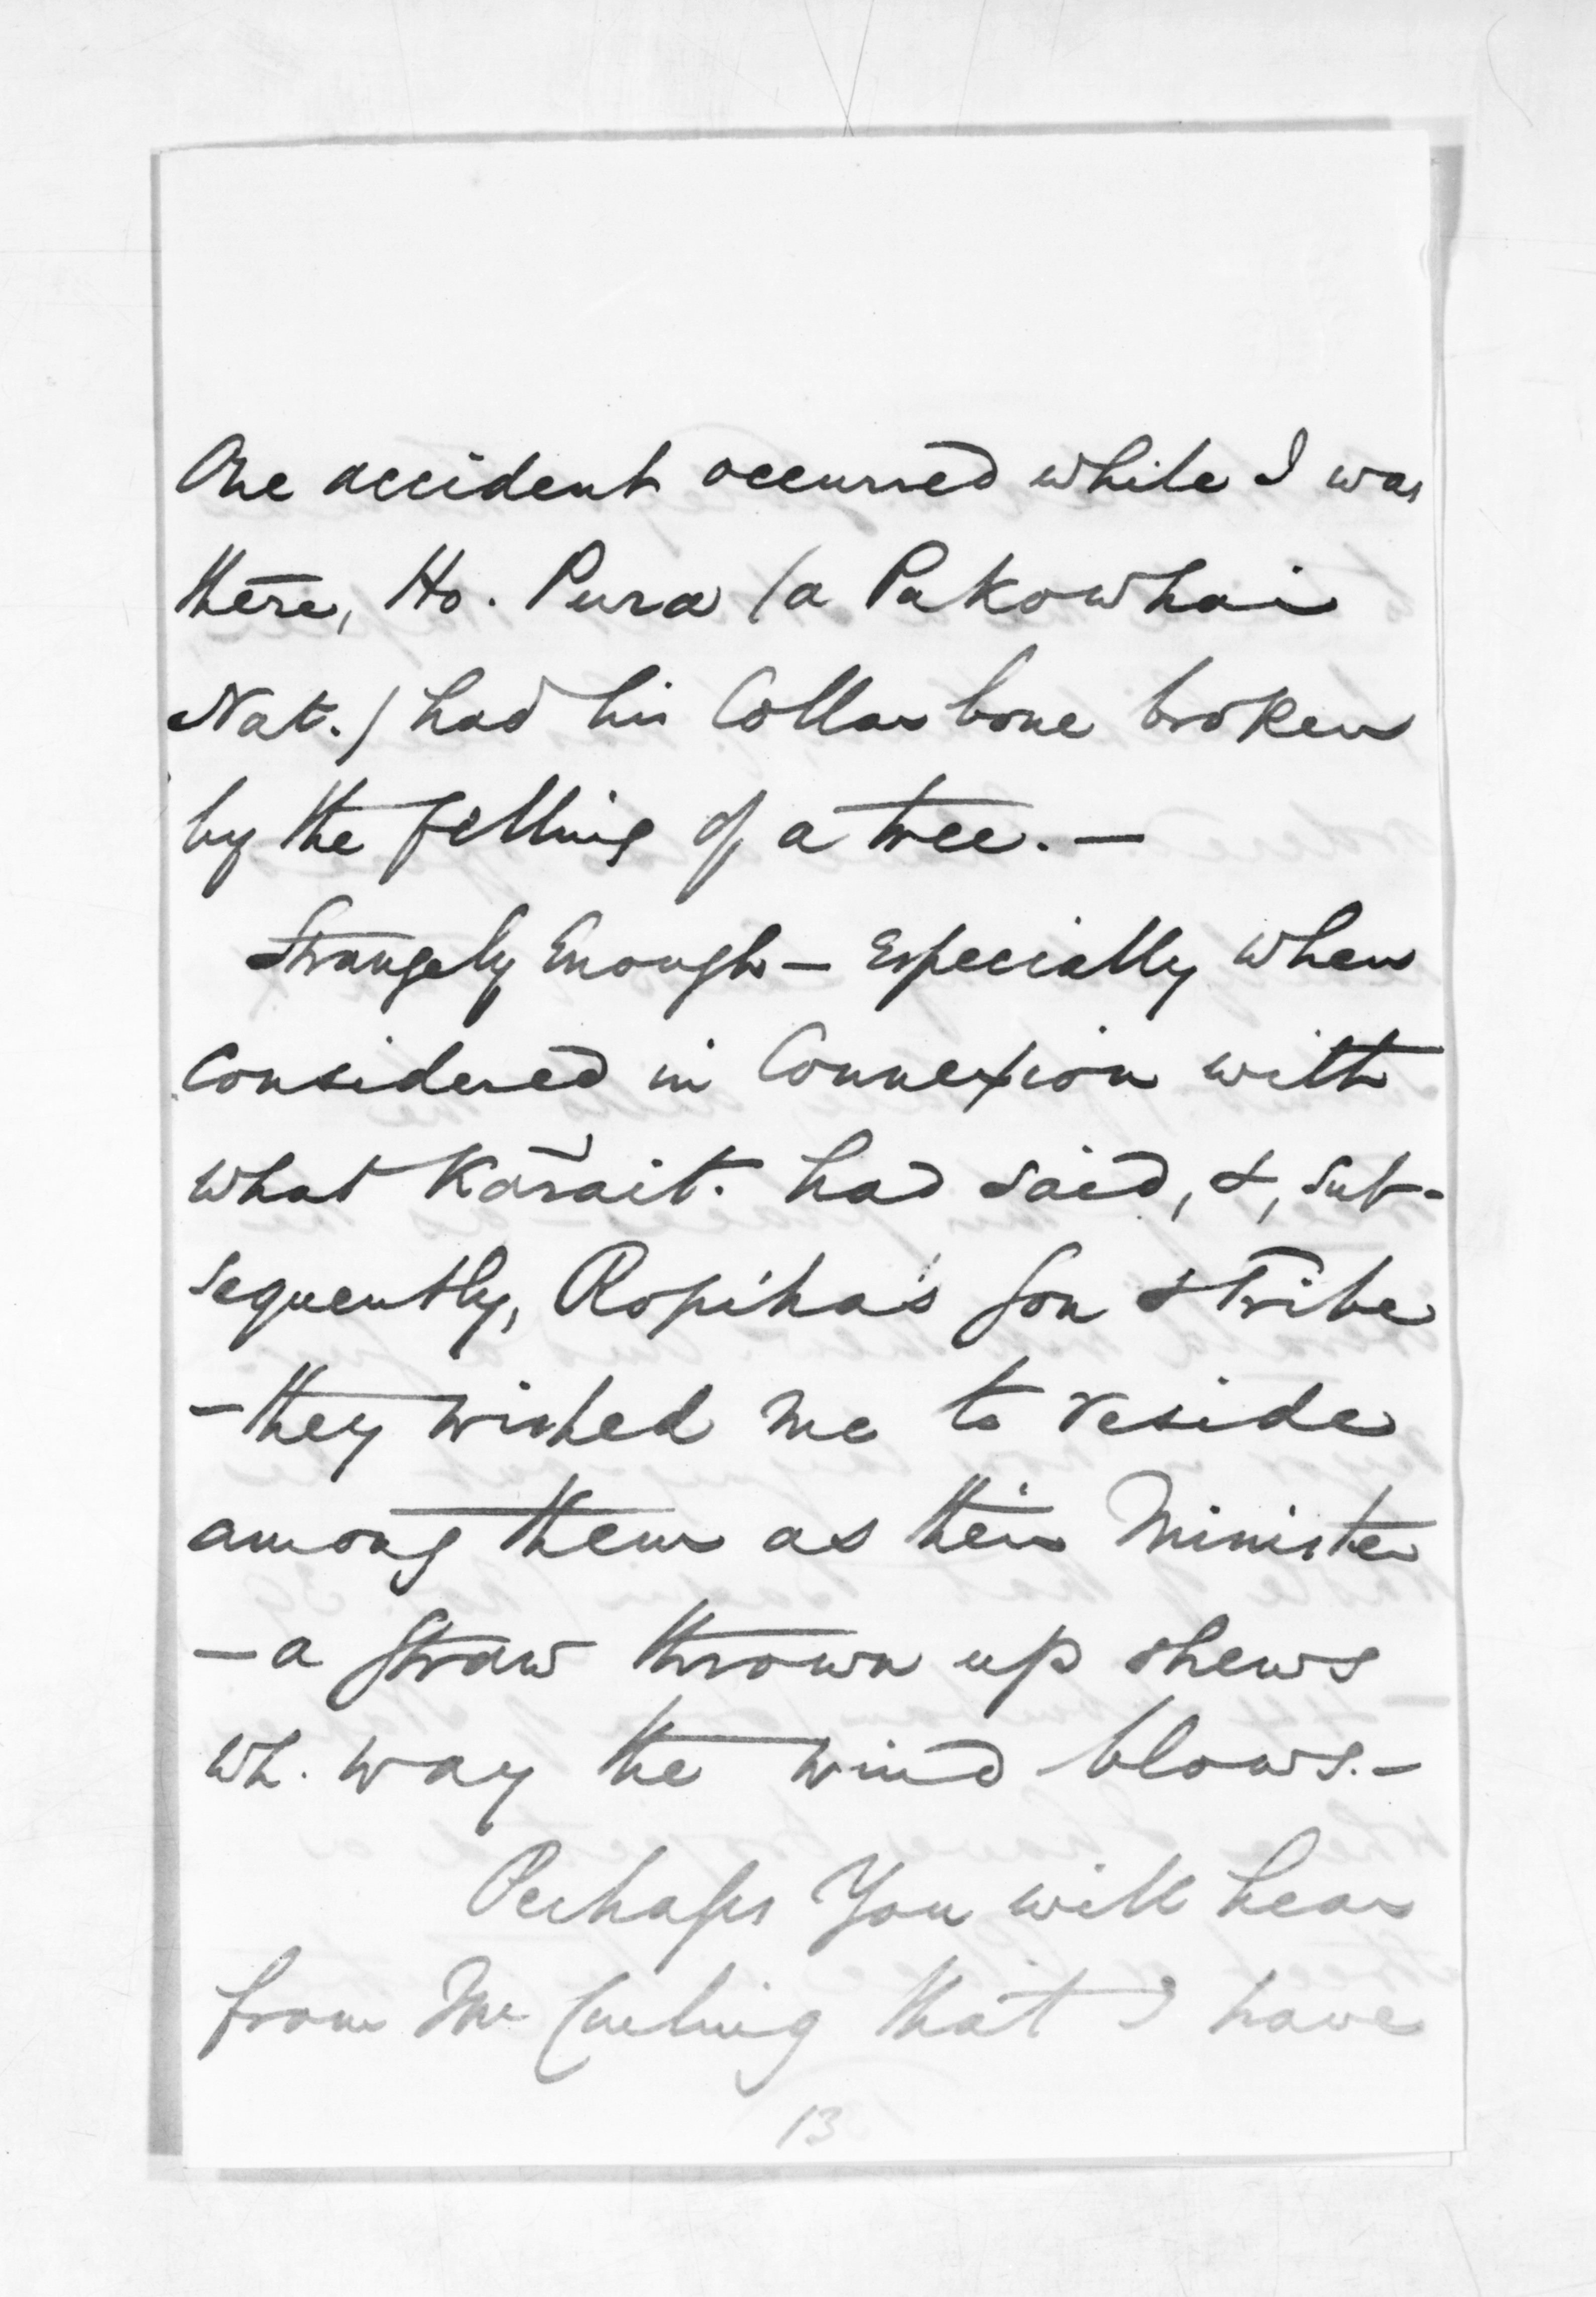 One accident occurred while I was
there, Ho. Pura (a Pakowhai
Nat.) had his Collar bone broken
by the felling of a tree. —
Strangely Enough — Especially when
Considered in Connexion with
what Karait. had said, &, sub-
sequently, Ropiha's son & Tribe
— they wished me to reside
among them as their Minister
— a straw thrown up shews
wh. way the wind blows. —
Perhaps You will hear
from Mr Curling that I have
13